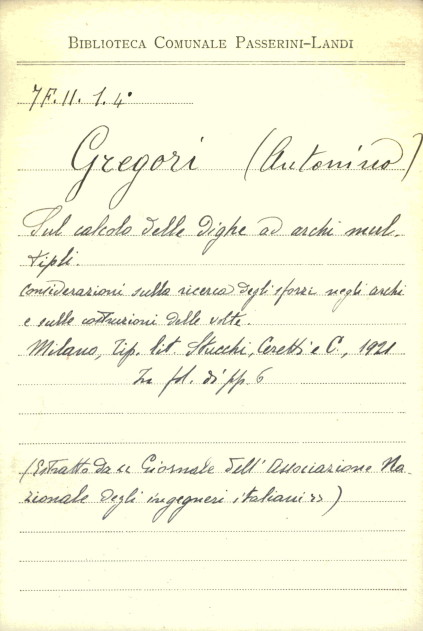 BIBLIOTECA COMUNALE PASSERINI-LANDI
7F.II.1.4°
Gregori (Antonino)
Sul calcolo delle dighe ad archi mul-
tipli.
Considerazioni sulla ricerca degli sforzi negli archi
e sulle costruzioni delle volte.
Milano, Tip. lit. Stucchi, Ceretti e C., 1921
In fol. di pp. 6
(Estratto da « Giornale dell'Associazione Na-
zionale degli ingegneri italiani »)